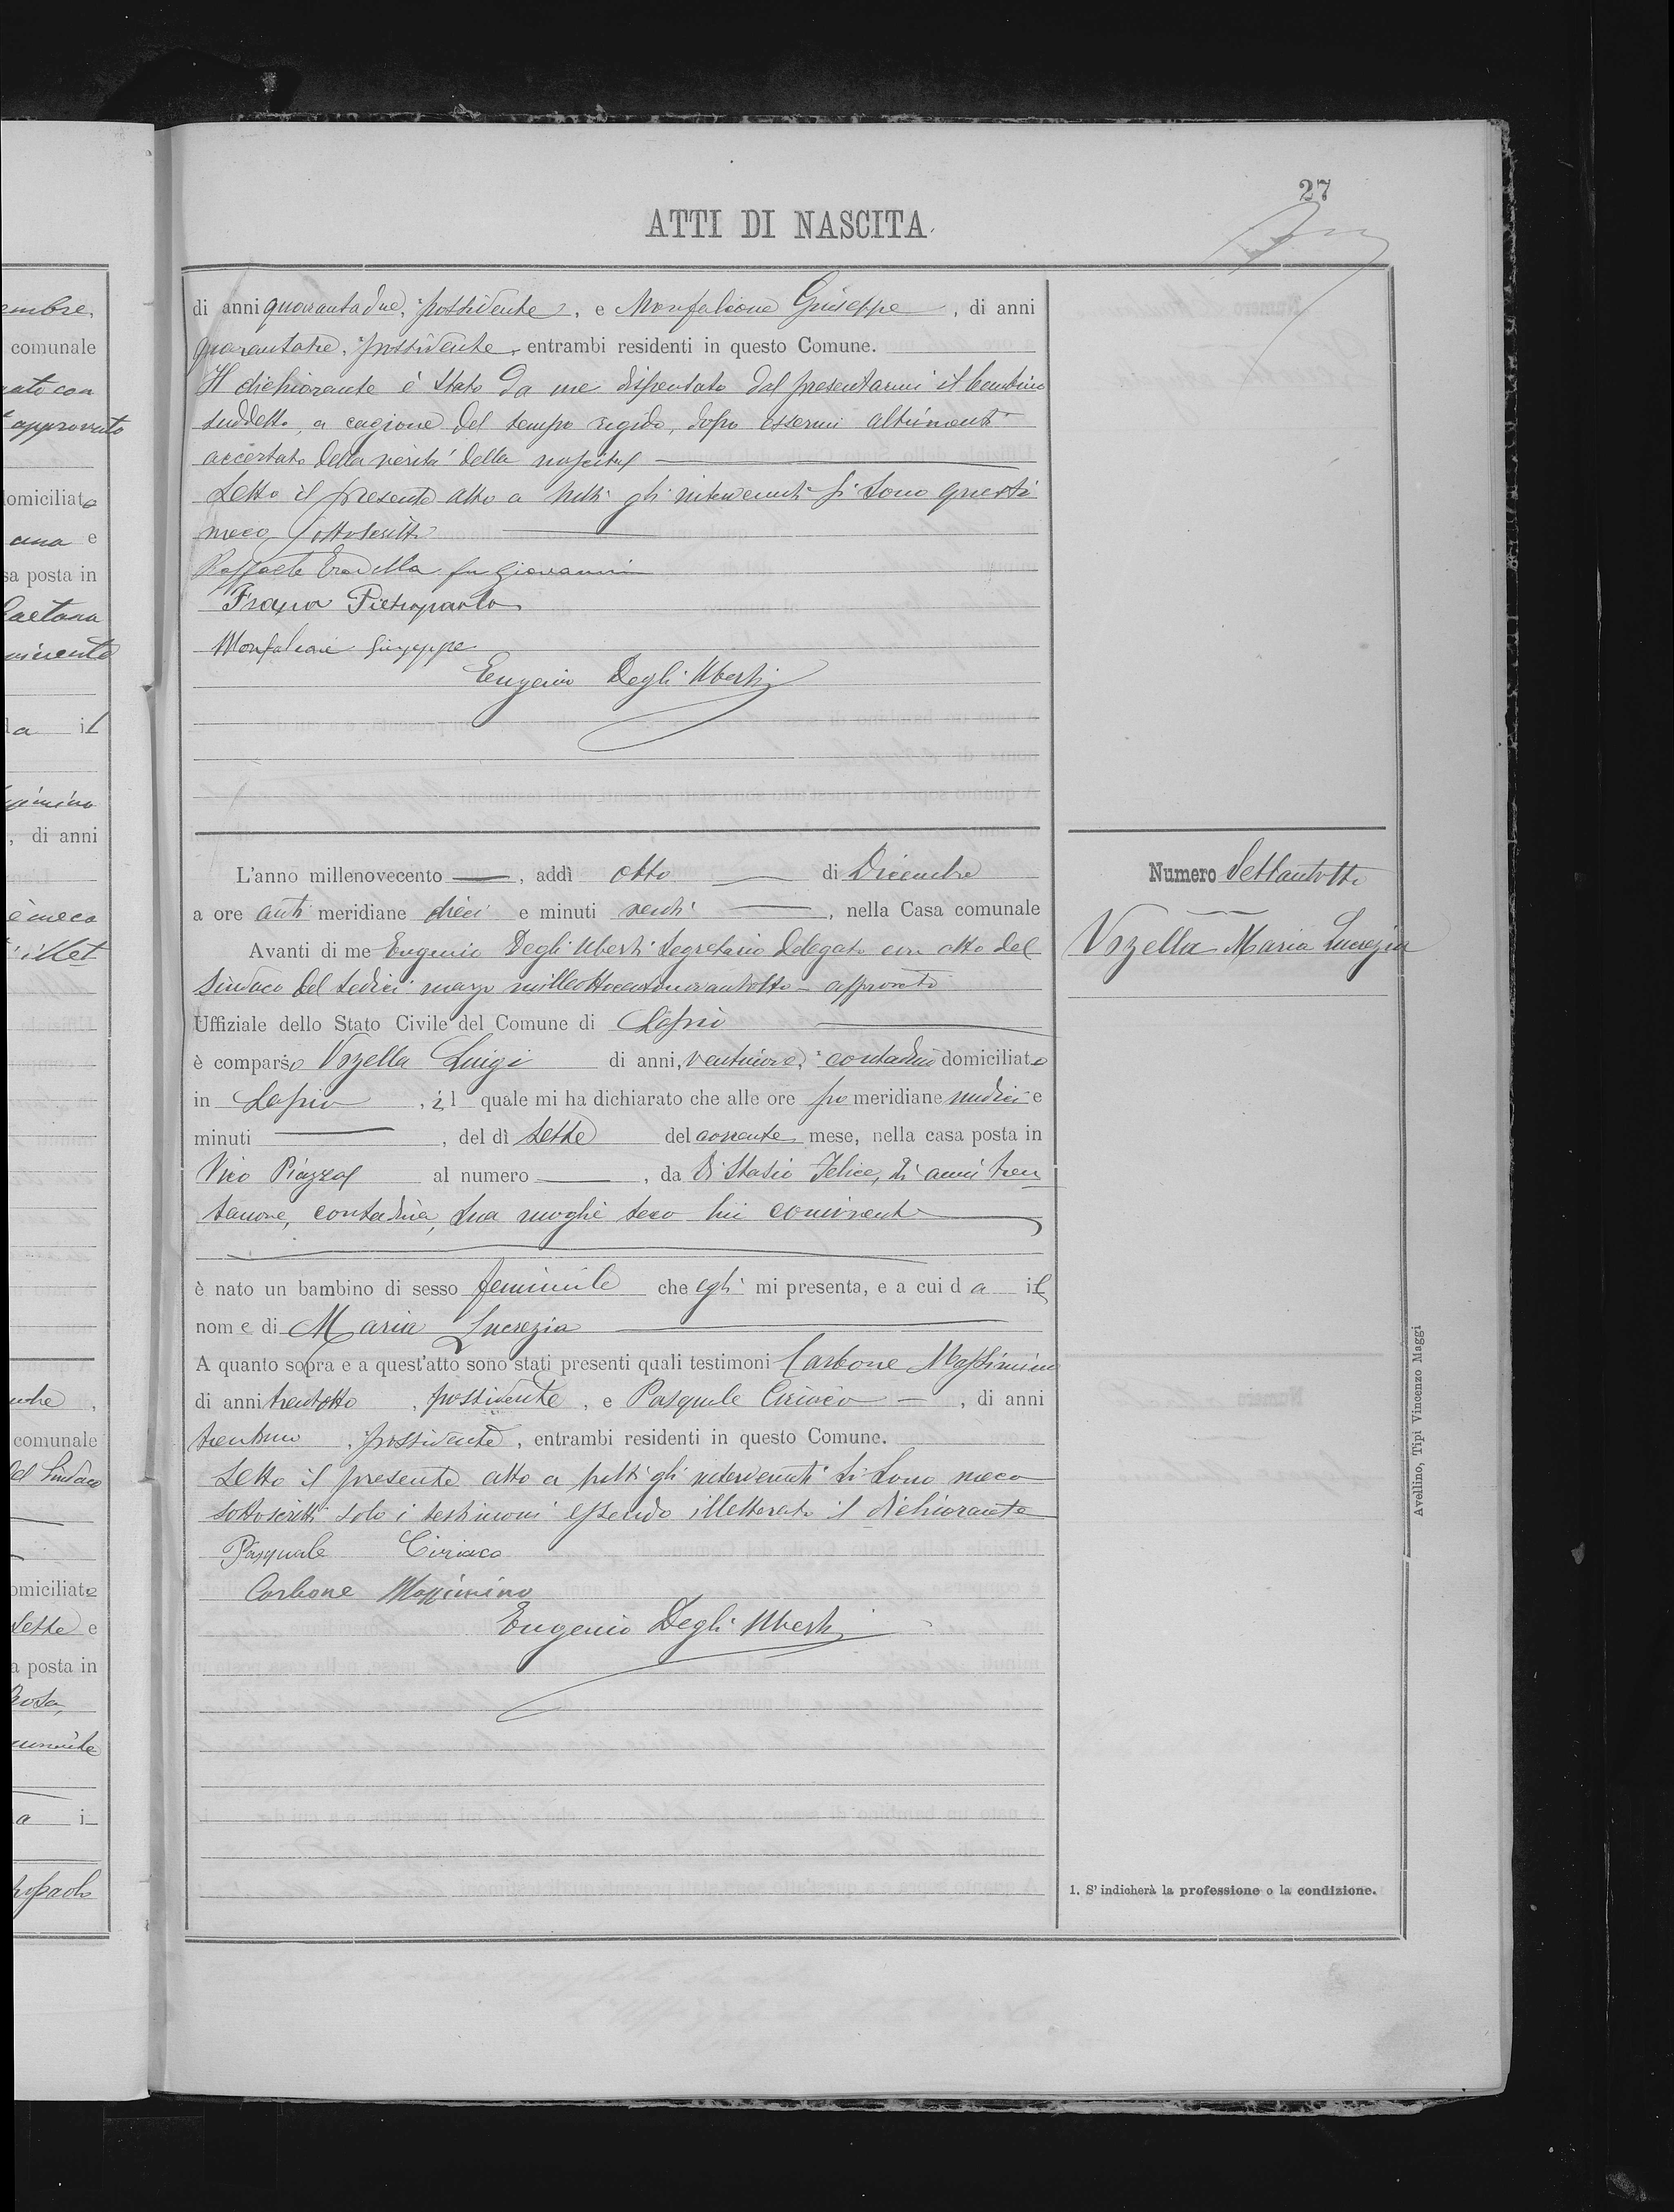 27
ATTI DI NASCITA
di anni quarantadue, possidente, e Monfalcone Giuseppe, di anni
quarantatre, possidente, entrambi residenti in questo Comune.
Il dichiarante è stato da me dispensato dal presentarmi il bambino
suddetto, a cagione del tempo rigido, dopo essermi altrimenti
accertato della verità della nascita
Letto il presente atto a tutti gli intervenuti si sono questi
meco sottoscritti
Raffaele fu Giovanni
Pietropaolo
Monfalcone Giuseppe
Eugenio Degli Uberti
L'anno millenovecento, addì otto di Dicembre
a ore anti meridiane dieci e minuti venti, nella Casa comunale
Avanti di me Eugenio Degli Uberti Segretario Delegato con atto del
Sindaco del sedici marzo milleottocentonovantotto approvato
Uffiziale dello Stato Civile del Comune di Lapio
è comparso Vozella Luigi di anni, ventinove, contadino domiciliato
in Lapio, il quale mi ha dichiarato che alle ore po meridiane undici e
minuti, del dì sette del corrente mese, nella casa posta in
Vico Piazza al numero, da Di Stasio Felice, di anni tren
tanove, contadina, sua moglie seco lui convivente
è nato un bambino di sesso feminile che egli mi presenta, e a cui da il
nome di Maria Lucrezia
A quanto sopra e a quest'atto sono stati presenti quali testimoni Carbone Massimino
di anni trentotto, possidente, e Pasquale Ciriaco, di anni
trentuno, possidente, entrambi residenti in questo Comune.
Letto il presente atto a tutti gli intervenuti si sono meco
sottoscritti solo i testimoni essendo illetterato il dichiarante
Pasquale Ciriaco
Carbone Massimino
Eugenio Degli Uberti
Numero Settantotto
Vozella Maria Lucrezia
1. S'indicherà la professione o la condizione.
Avellino, Tipi Vincenzo Maggi
embre,
comunale
approvato
omiciliato
ana e
sa posta in
Gaetana
a il
, di anni
è meco
illet
comunale
del Sindaco
omiciliato
sette e
a posta in
Rosa,
a i